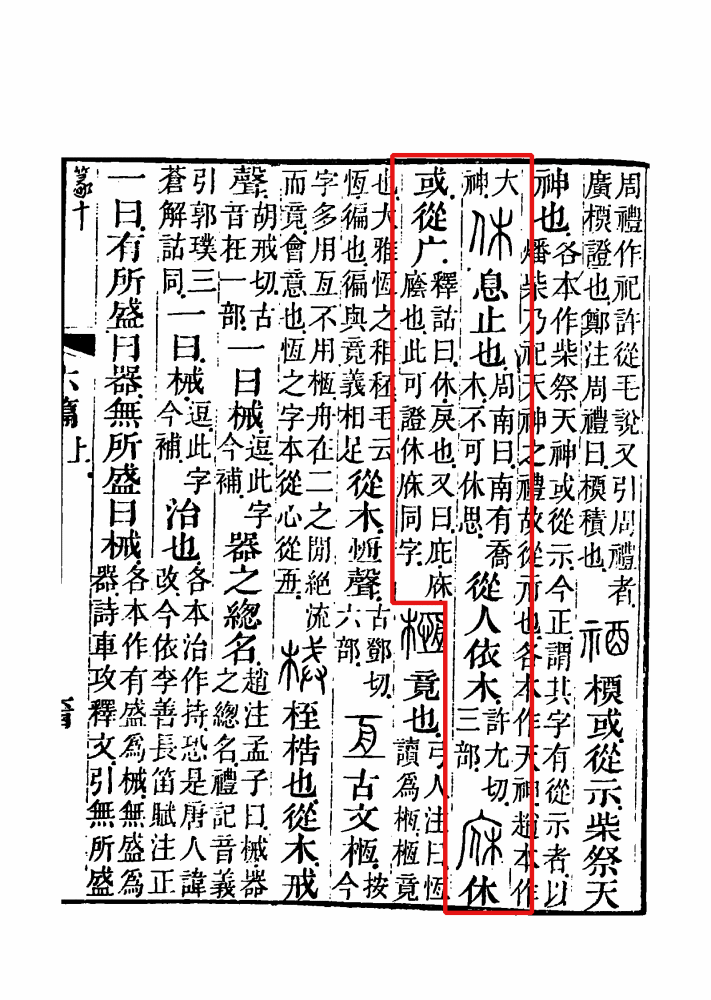 周禮作祀許從毛說又引周禮者廣槱證也鄭注周禮曰槱積也禉槱或從示柴祭天
神也各本作柴祭天神或從示今正謂其字有從示者以燔柴乃祀天神之禮故從示也各本作天神趙本作
大神休息止也周南曰南有喬木不可休思從人依木許尤切三部庥休
或從广釋詁曰休戾也又曰庇庥廕也此可證休庥同字㮓竟也弓人注曰恆讀爲㮓㮓竟
也大雅恆之秬秠毛云恆徧也徧與竟義相足從木恆聲古鄧切六部亙古文㮓按今
字多用亙不用㮓舟在二之閒絕流而竟會意也恆之字本從心從舟械桎梏也從木戒
聲胡戒切古音在一部一曰械逗此字今補器之緫名趙注孟子曰械器之緫名禮記音義
引郭璞三蒼解詁同一曰械逗此字今補治也各本治作持恐是唐人諱改今依李善長笛賦注正
一曰有所盛曰器無所盛曰械各本作有盛爲械無盛爲器詩車攻釋文引無所盛
篆十
六篇上